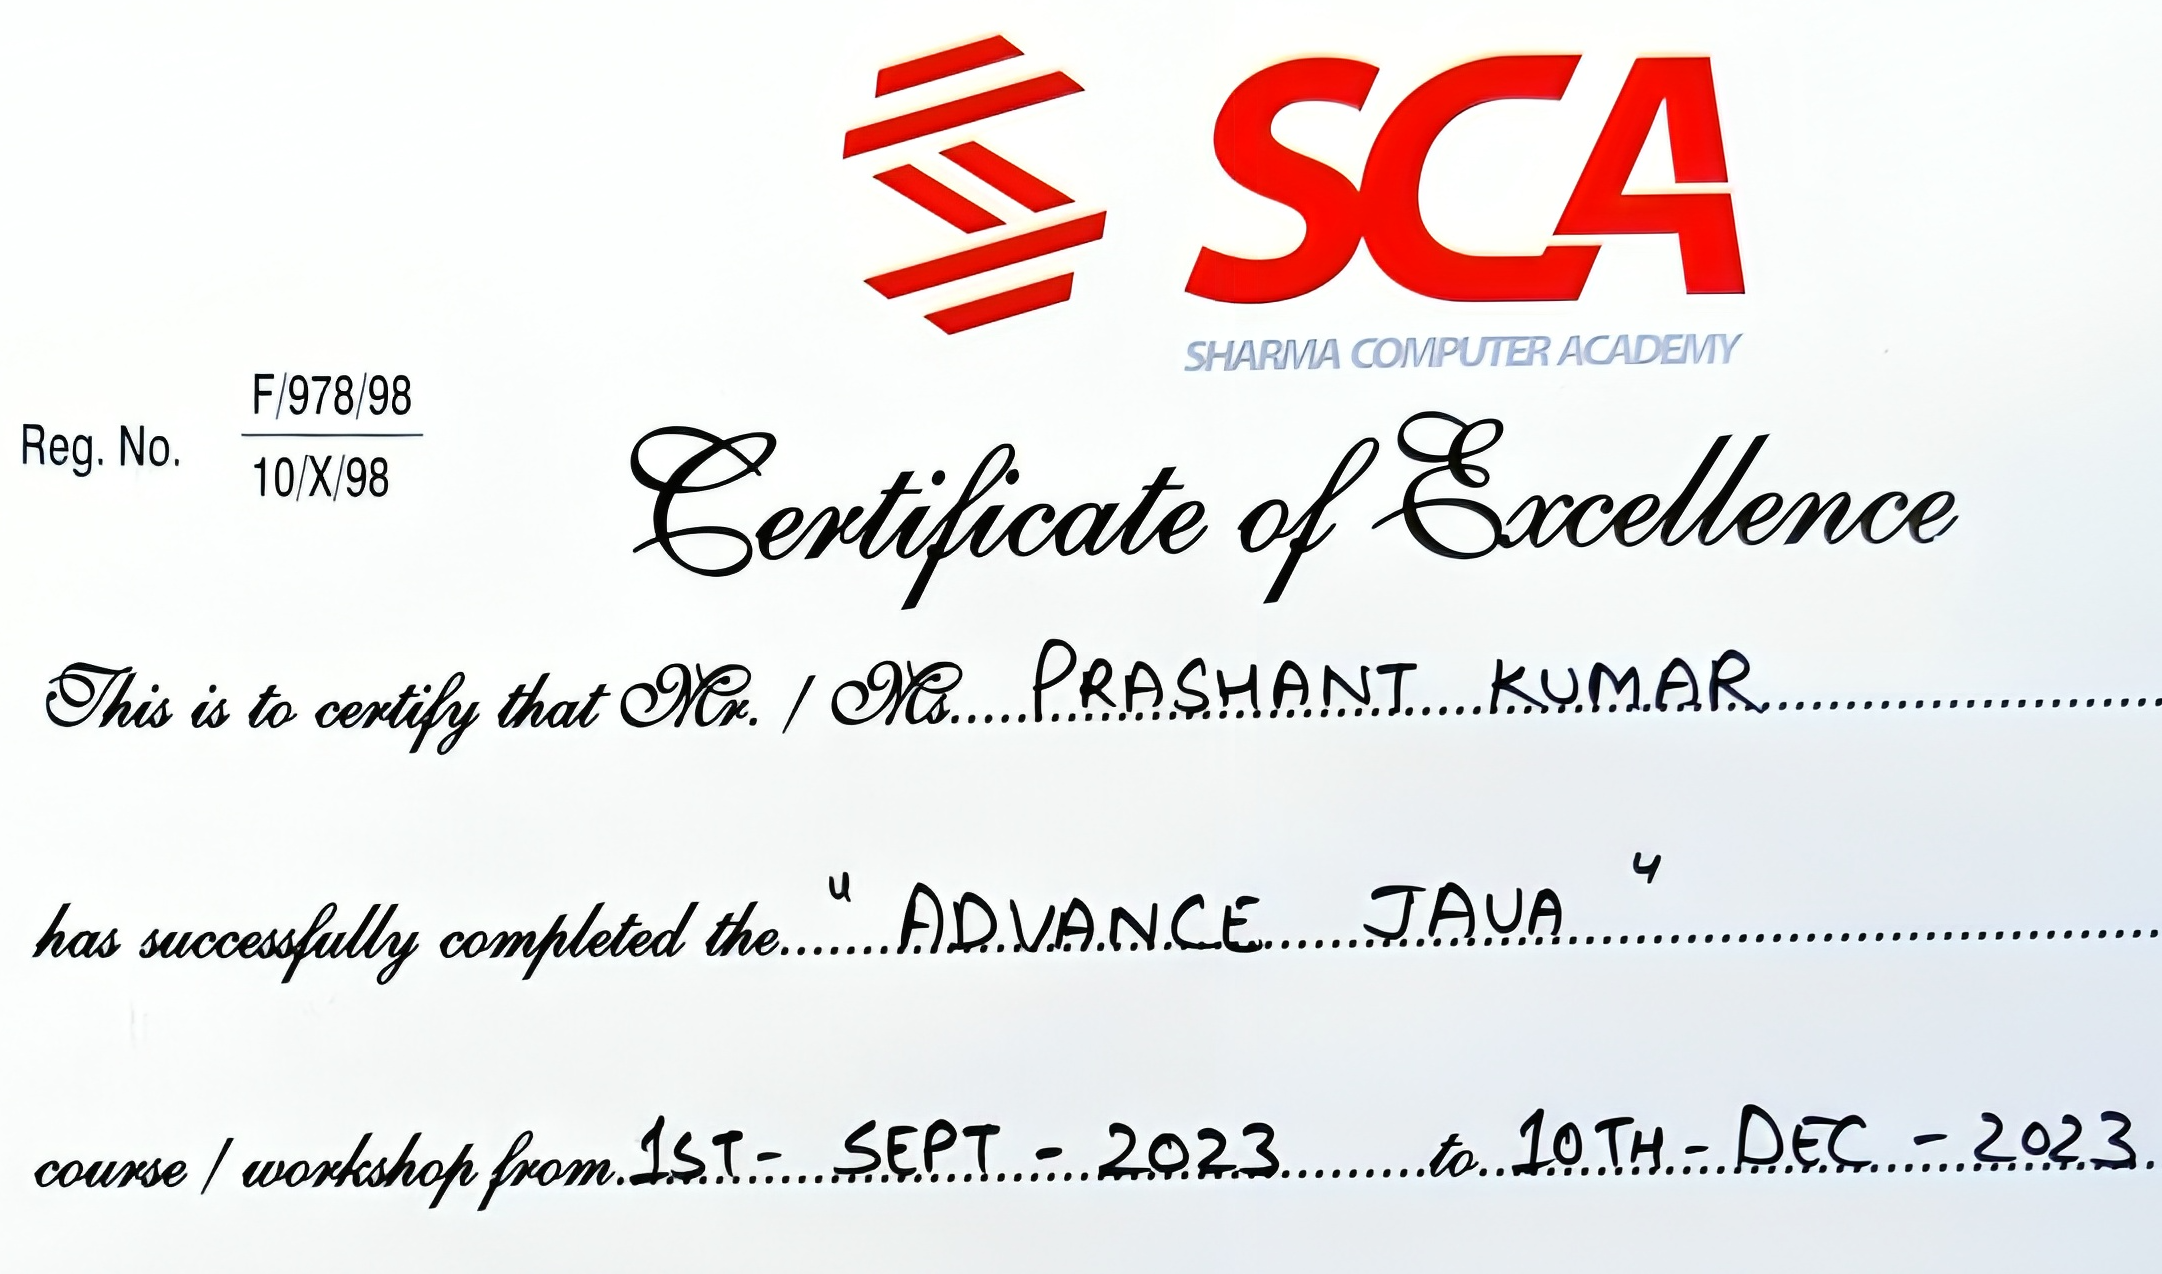 SCA
SHARMA COMPUTER ACADEMY
Reg. No. F/978/98
10/X/98
Certificate of Excellence
This is to certify that Mr. / Ms..... PRASHANT KUMAR
has successfully completed the..... "ADVANCE JAVA"
course / workshop from. 1ST - SEPT - 2023 to 10TH - DEC - 2023